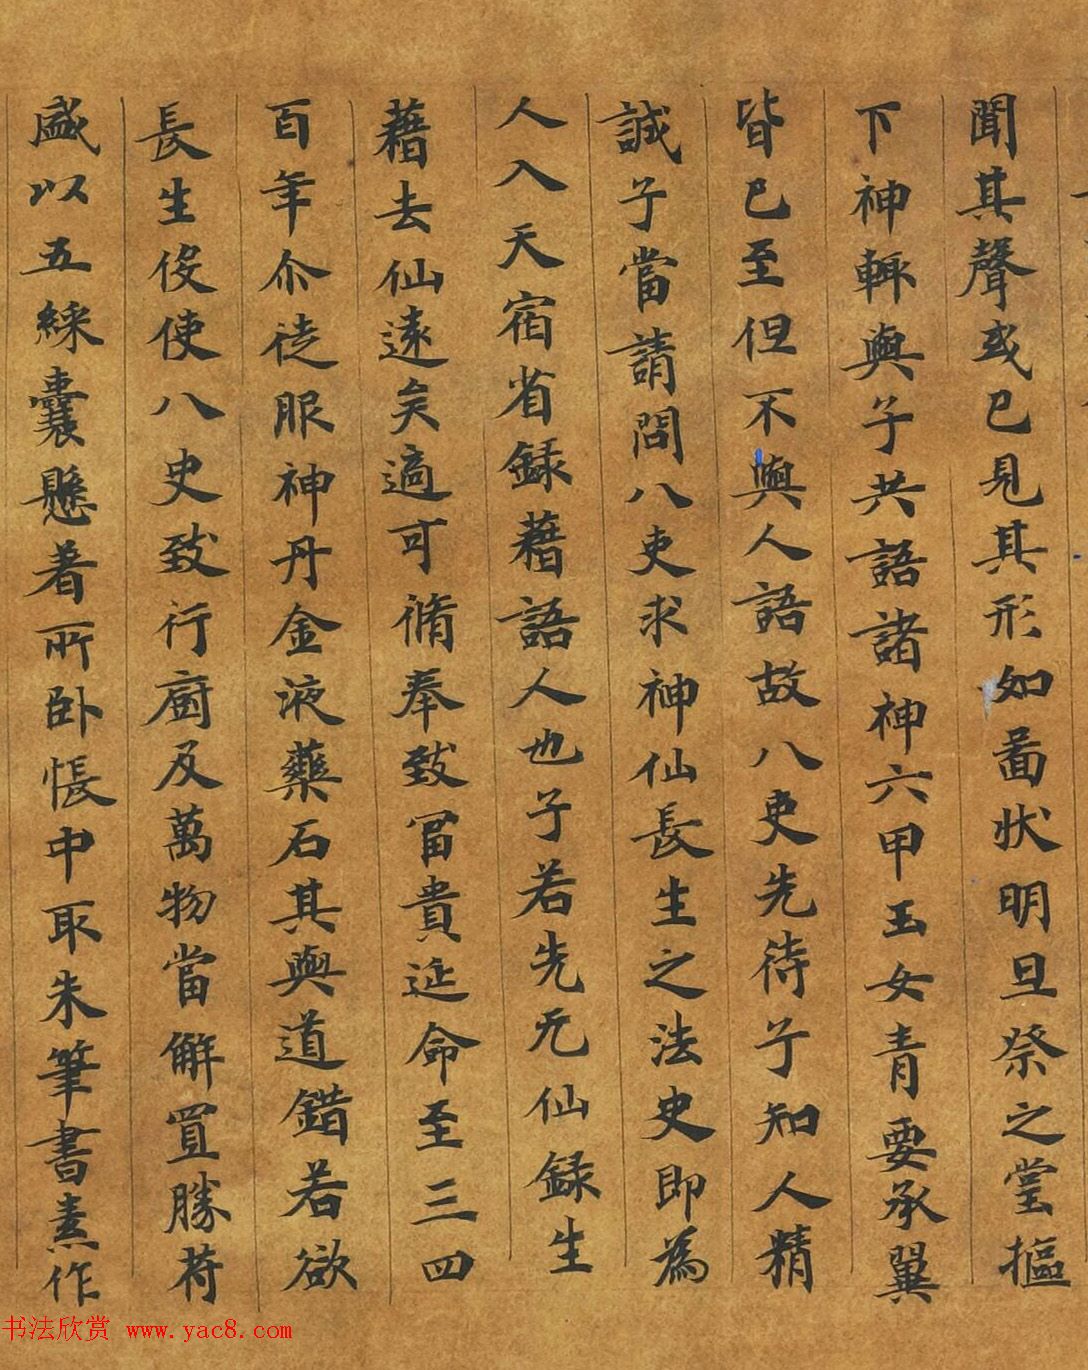 聞其聲或已見其形如啚狀明旦祭之堂摳
下神輙與子共語諸神六甲玉女青要承翼
皆已至但不與人語故八吏先待子知人精
誠子當請問八吏求神仙長生之法史即為
人入天宿省録藉語人也子若先无仙録生
藉去仙遠矣適可脩奉致冨貴延命至三四
百年尒徒服神丹金液藥石其與道錯若欲
長生役使八史致行廚及萬物當解買勝苻
盛以五綵囊懸著所卧帳中取朱筆書素作
书法欣赏 www.yac8.com